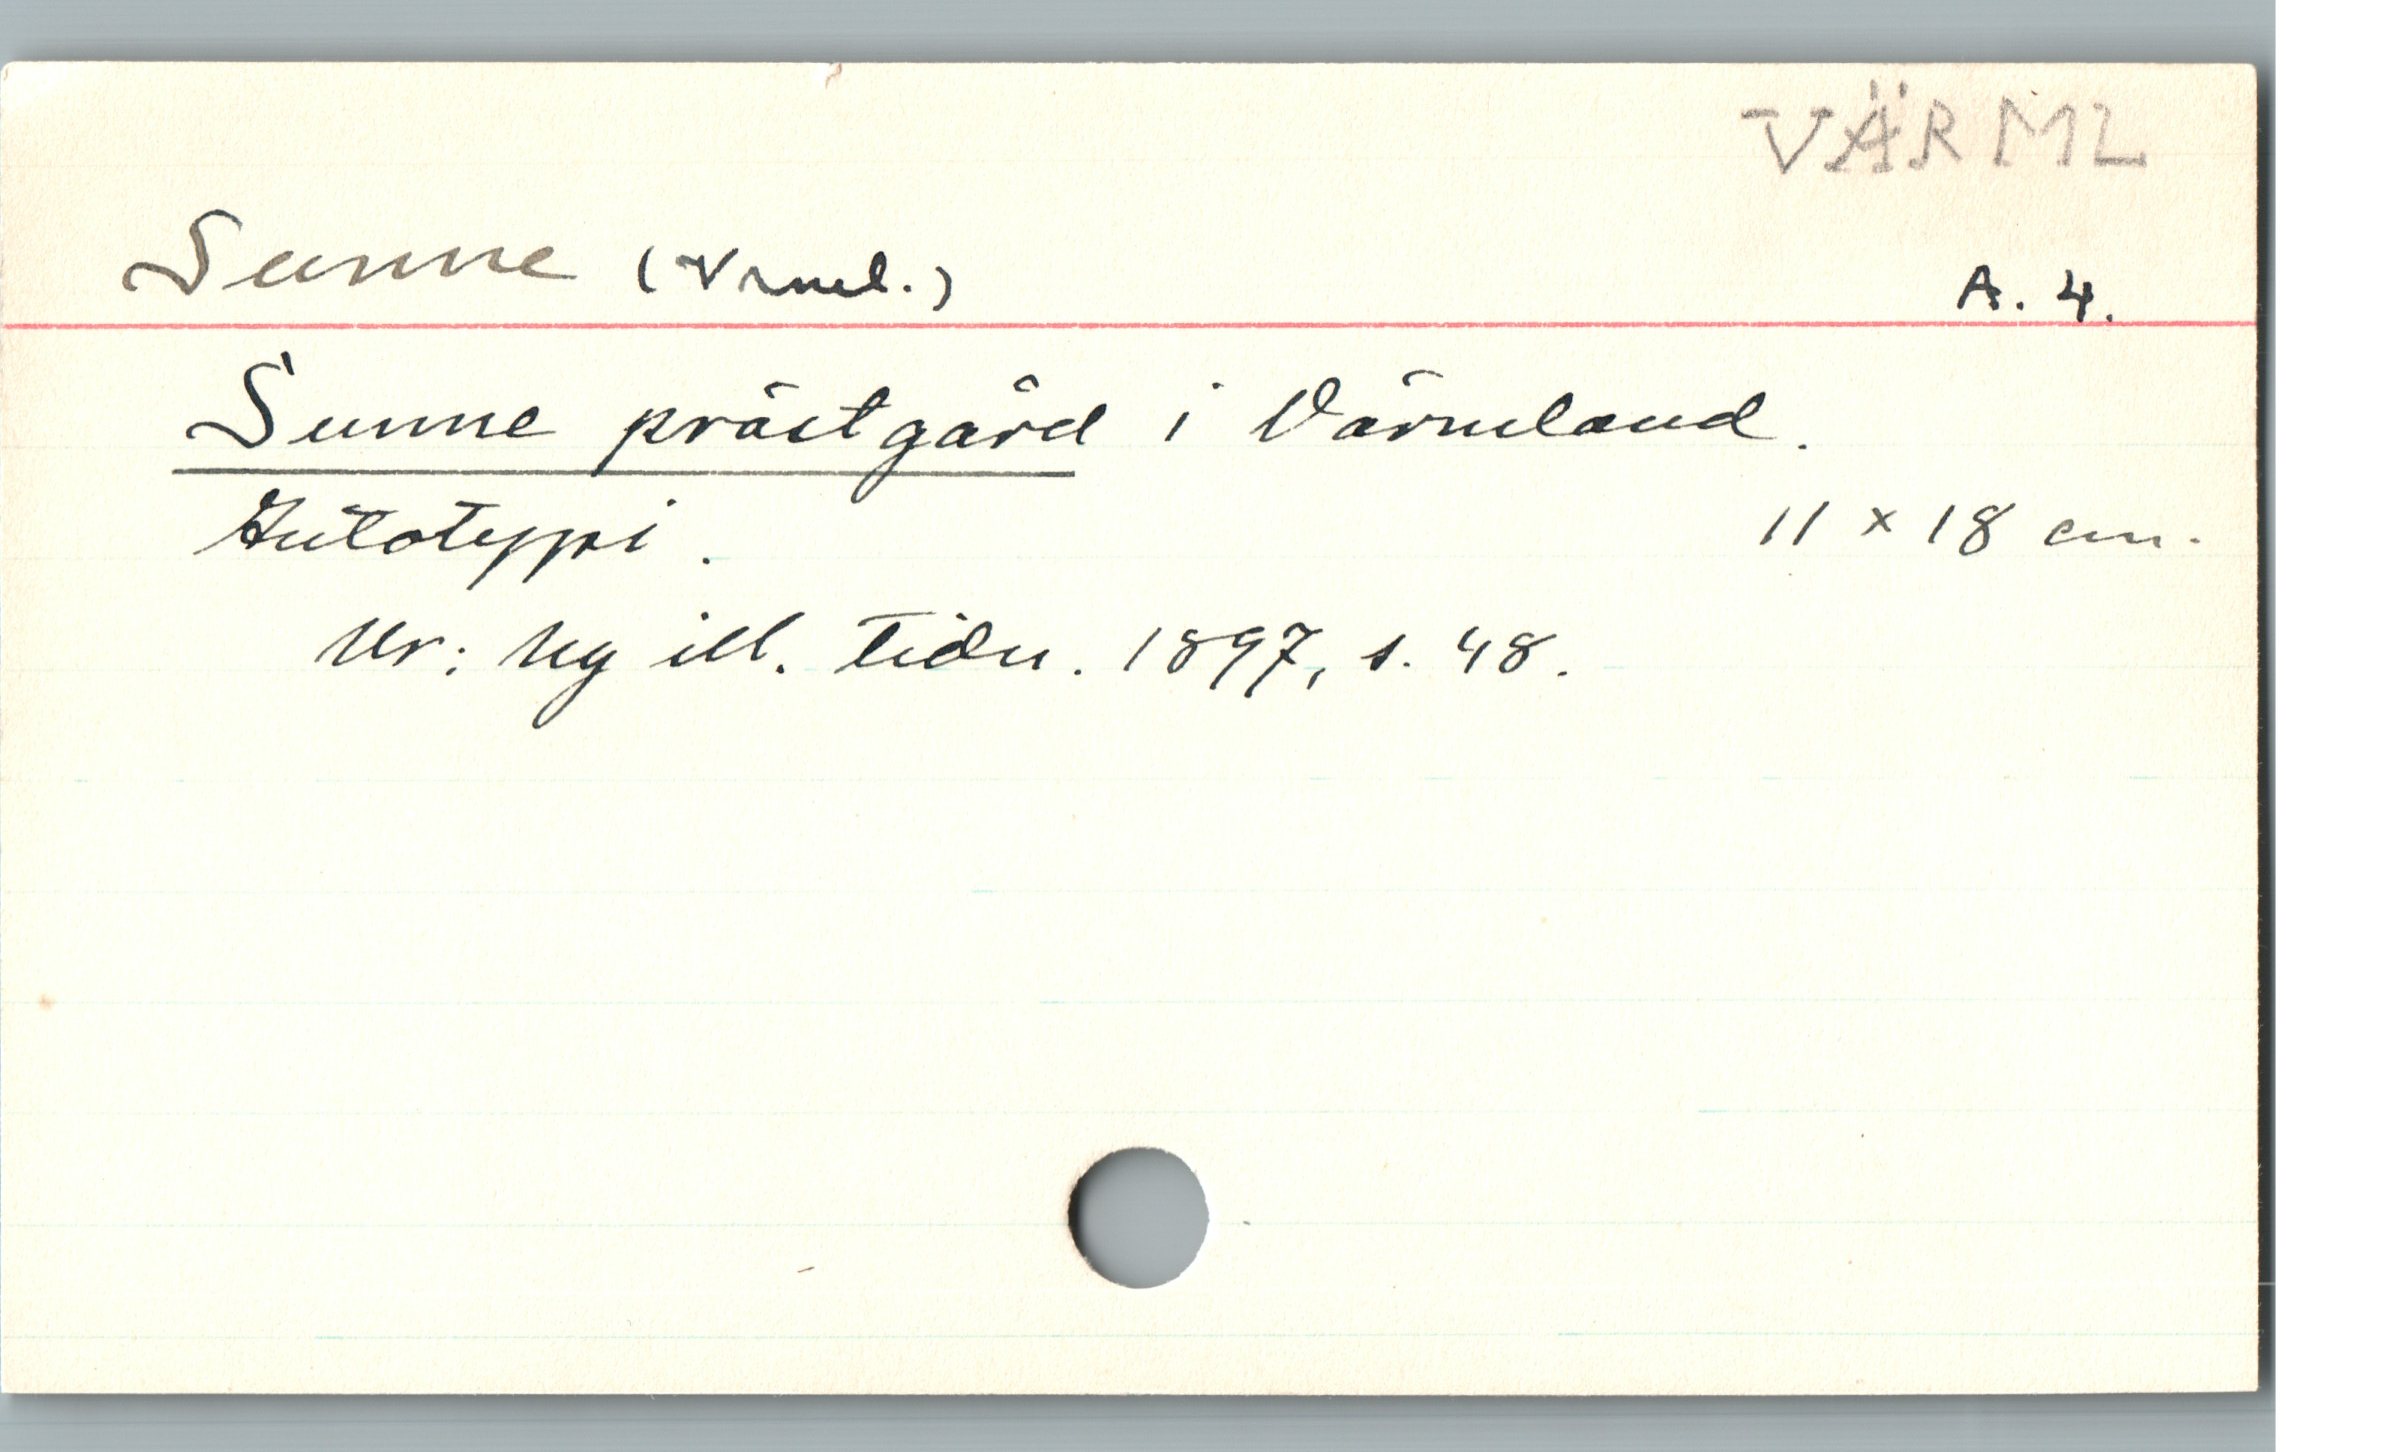 VÄRML
Sunne (Vrml.) A. 4.
Sunne prästgård i Värmland.
Autotypi. 11 x 18 cm.
Ur: Ny ill. Tidn. 1897, s. 48.